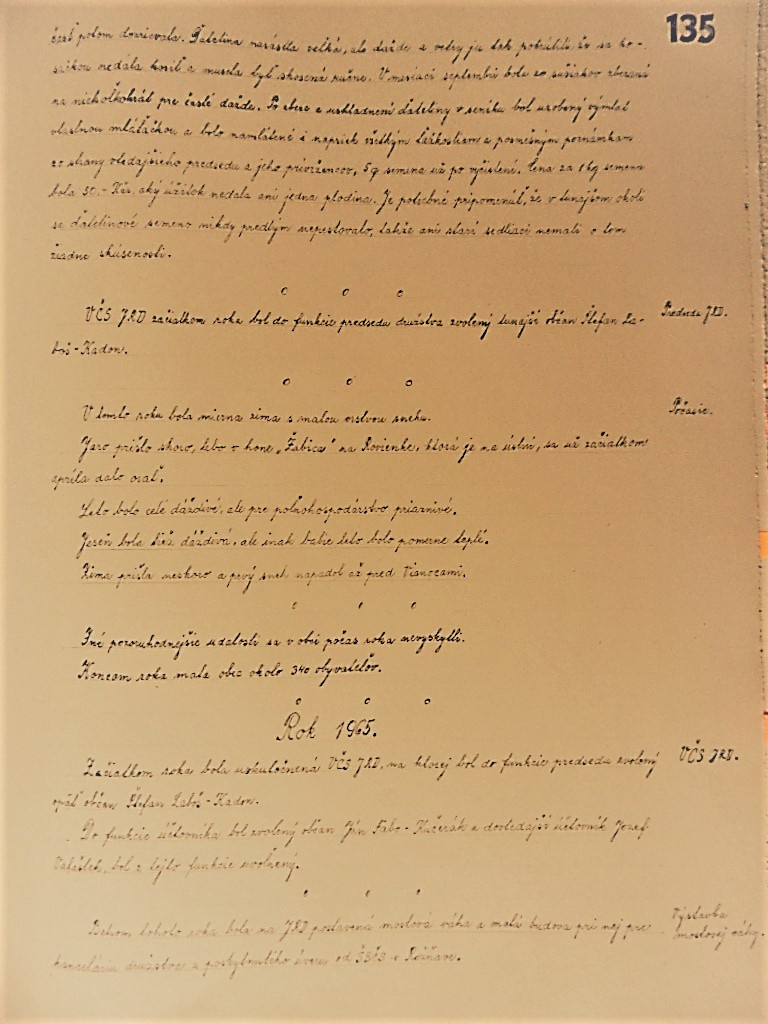 135
časť potom dozrievala. Ďatelina narástla veľká, ale dažde a vetry ju tak pokrútili, že sa ko-
sačkou nedala kosiť a musela byť skosená ručne. V mesiaci septembri bola zo sušiakov zberaná
na niekoľkokrát pre časté dažde. Po zbere a uskladnení ďateliny v seníku bol urobený výmlat
vlastnou mláťačkou a bolo namlátené i napriek všetkým ťažkostiam a posmešným poznámkam
zo strany vtedajšieho predsedu a jeho prívržencov, 5 q semena už po vyčistení. Cena za 1 kg semena
bola 50.- Kčs, aký úžitok nedala ani jedna plodina. Je potrebné pripomenúť, že v tunajšom okolí
sa ďatelinové semeno nikdy predtým nepestovalo, takže ani starí sedliaci nemali o tom
žiadne skúsenosti.
VČS JRD začiatkom roka bol do funkcie predsedu družstva zvolený tunajší občan Štefan La-
boš - Kadon.
Predseda JRD.
V tomto roku bola mierna zima s malou vrstvou snehu.
Počasie.
Jaro prišlo skoro, lebo v hone „Žabica" na Rovienke, ktorá je na ústní, sa už začiatkom
apríla dalo orať.
Leto bolo celé dáždivé, ale pre poľnohospodárstvo priaznivé.
Jeseň bola tiež dáždivá, ale inak babie leto bolo pomerne teplé.
Zima prišla neskoro a prvý sneh napadol až pred Vianocami.
Iné pozoruhodnejšie udalosti sa v obci počas roka nevyskytli.
Koncom roka mala obec okolo 340 obyvateľov.
Rok 1965.
Začiatkom roka bola uskutočnená VČS JRD, na ktorej bol do funkcie predsedu zvolený
VČS JRD.
opäť občan Štefan Laboš - Kadon.
Do funkcie účtovníka bol zvolený občan Ján Fabo - Kučerák a doterajší účtovník Jozef
Valaštek, bol z tejto funkcie uvoľnený.
Behom tohoto roka bola na JRD postavená mostová váha a malá budova pri nej pre
Výstavba
mostovej váhy.
kanceláriu družstva z poskytnutého úveru od ŠBČS v Rožňave.